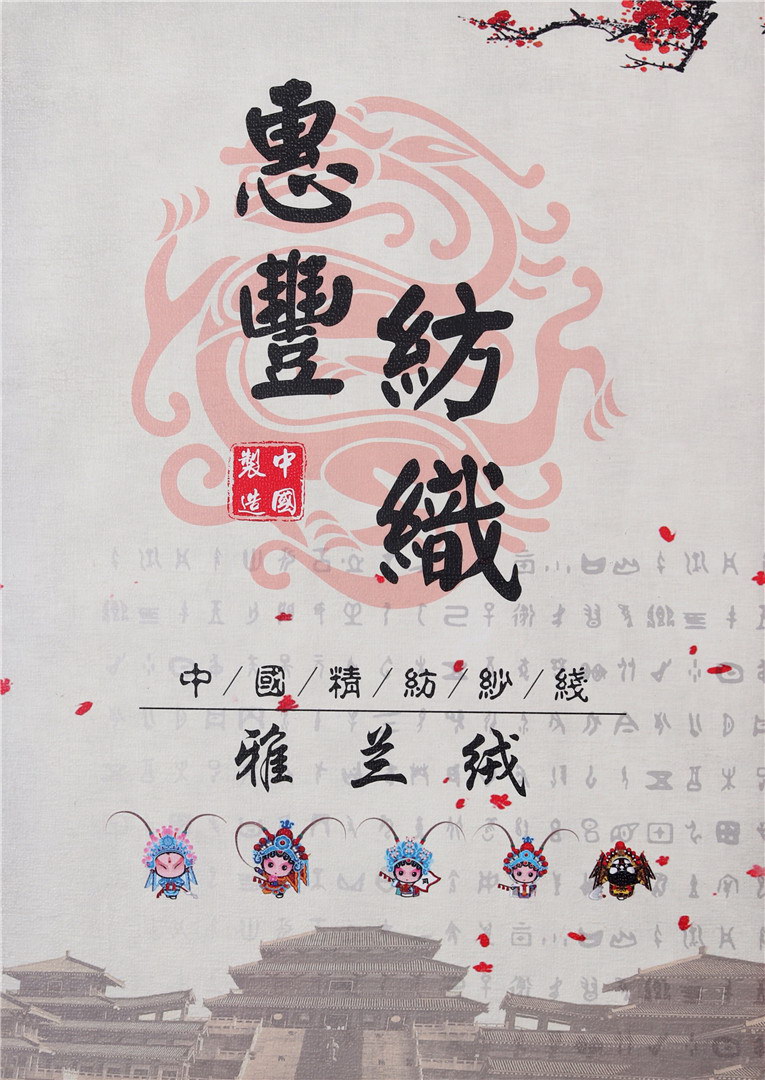 惠豐
紡織
中國
製造
中/國/精/紡/紗/綫
雅兰绒